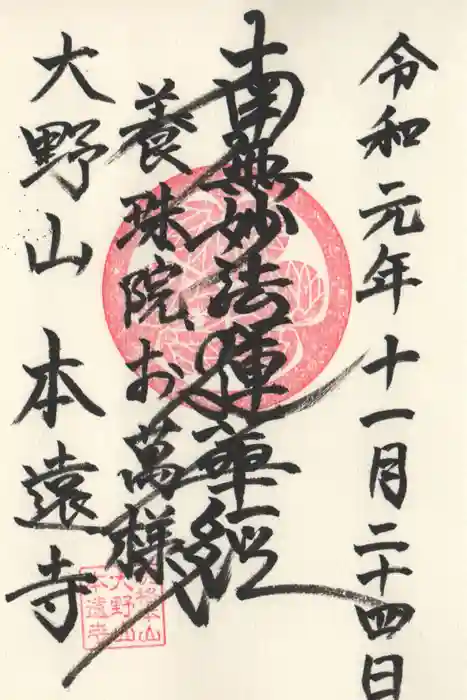 令和元年十一月二十四日
南無妙法蓮華経
養珠院お萬様
大野山 本遠寺